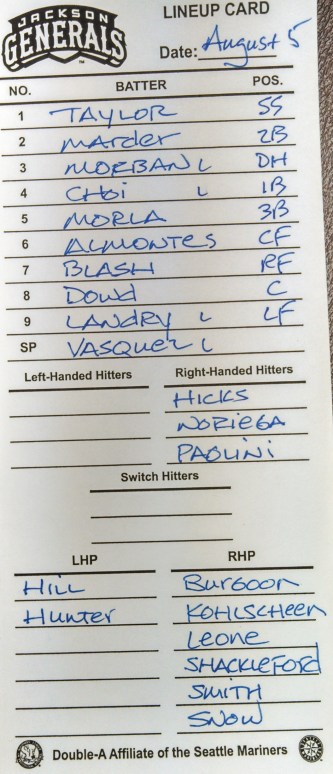 JACKSON
GENERALS
LINEUP CARD
Date: August 5
NO. BATTER POS.
1 TAYLOR SS
2 Marder 2B
3 MORBAN L DH
4 CHOi L 1B
5 MORLA 3B
6 ALMONTES CF
7 BLASH RF
8 DOWD C
9 LANDRY L LF
SP VASQUEZ L
Left-Handed Hitters Right-Handed Hitters
HICKS
NORiEGA
PAOLiNi
Switch Hitters
LHP RHP
HiLL Burgoon
Hunter KOHLSCHEEN
Leone
SHACKLEFORD
SMiTH
SNOW
Double-A Affiliate of the Seattle Mariners